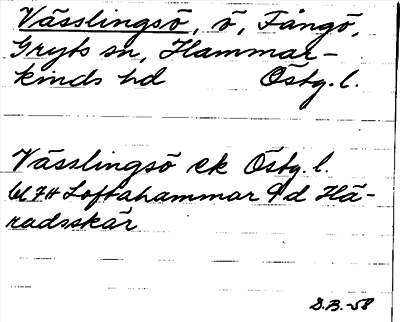 Vässlingsö, ö, Fångö,
Gryts sn, Hammar-
kinds hd Östg. l.
Vässlingsö ek Östg. l.
bl 7H Loftahammar 9d Hä-
radsskär
S.B. -58